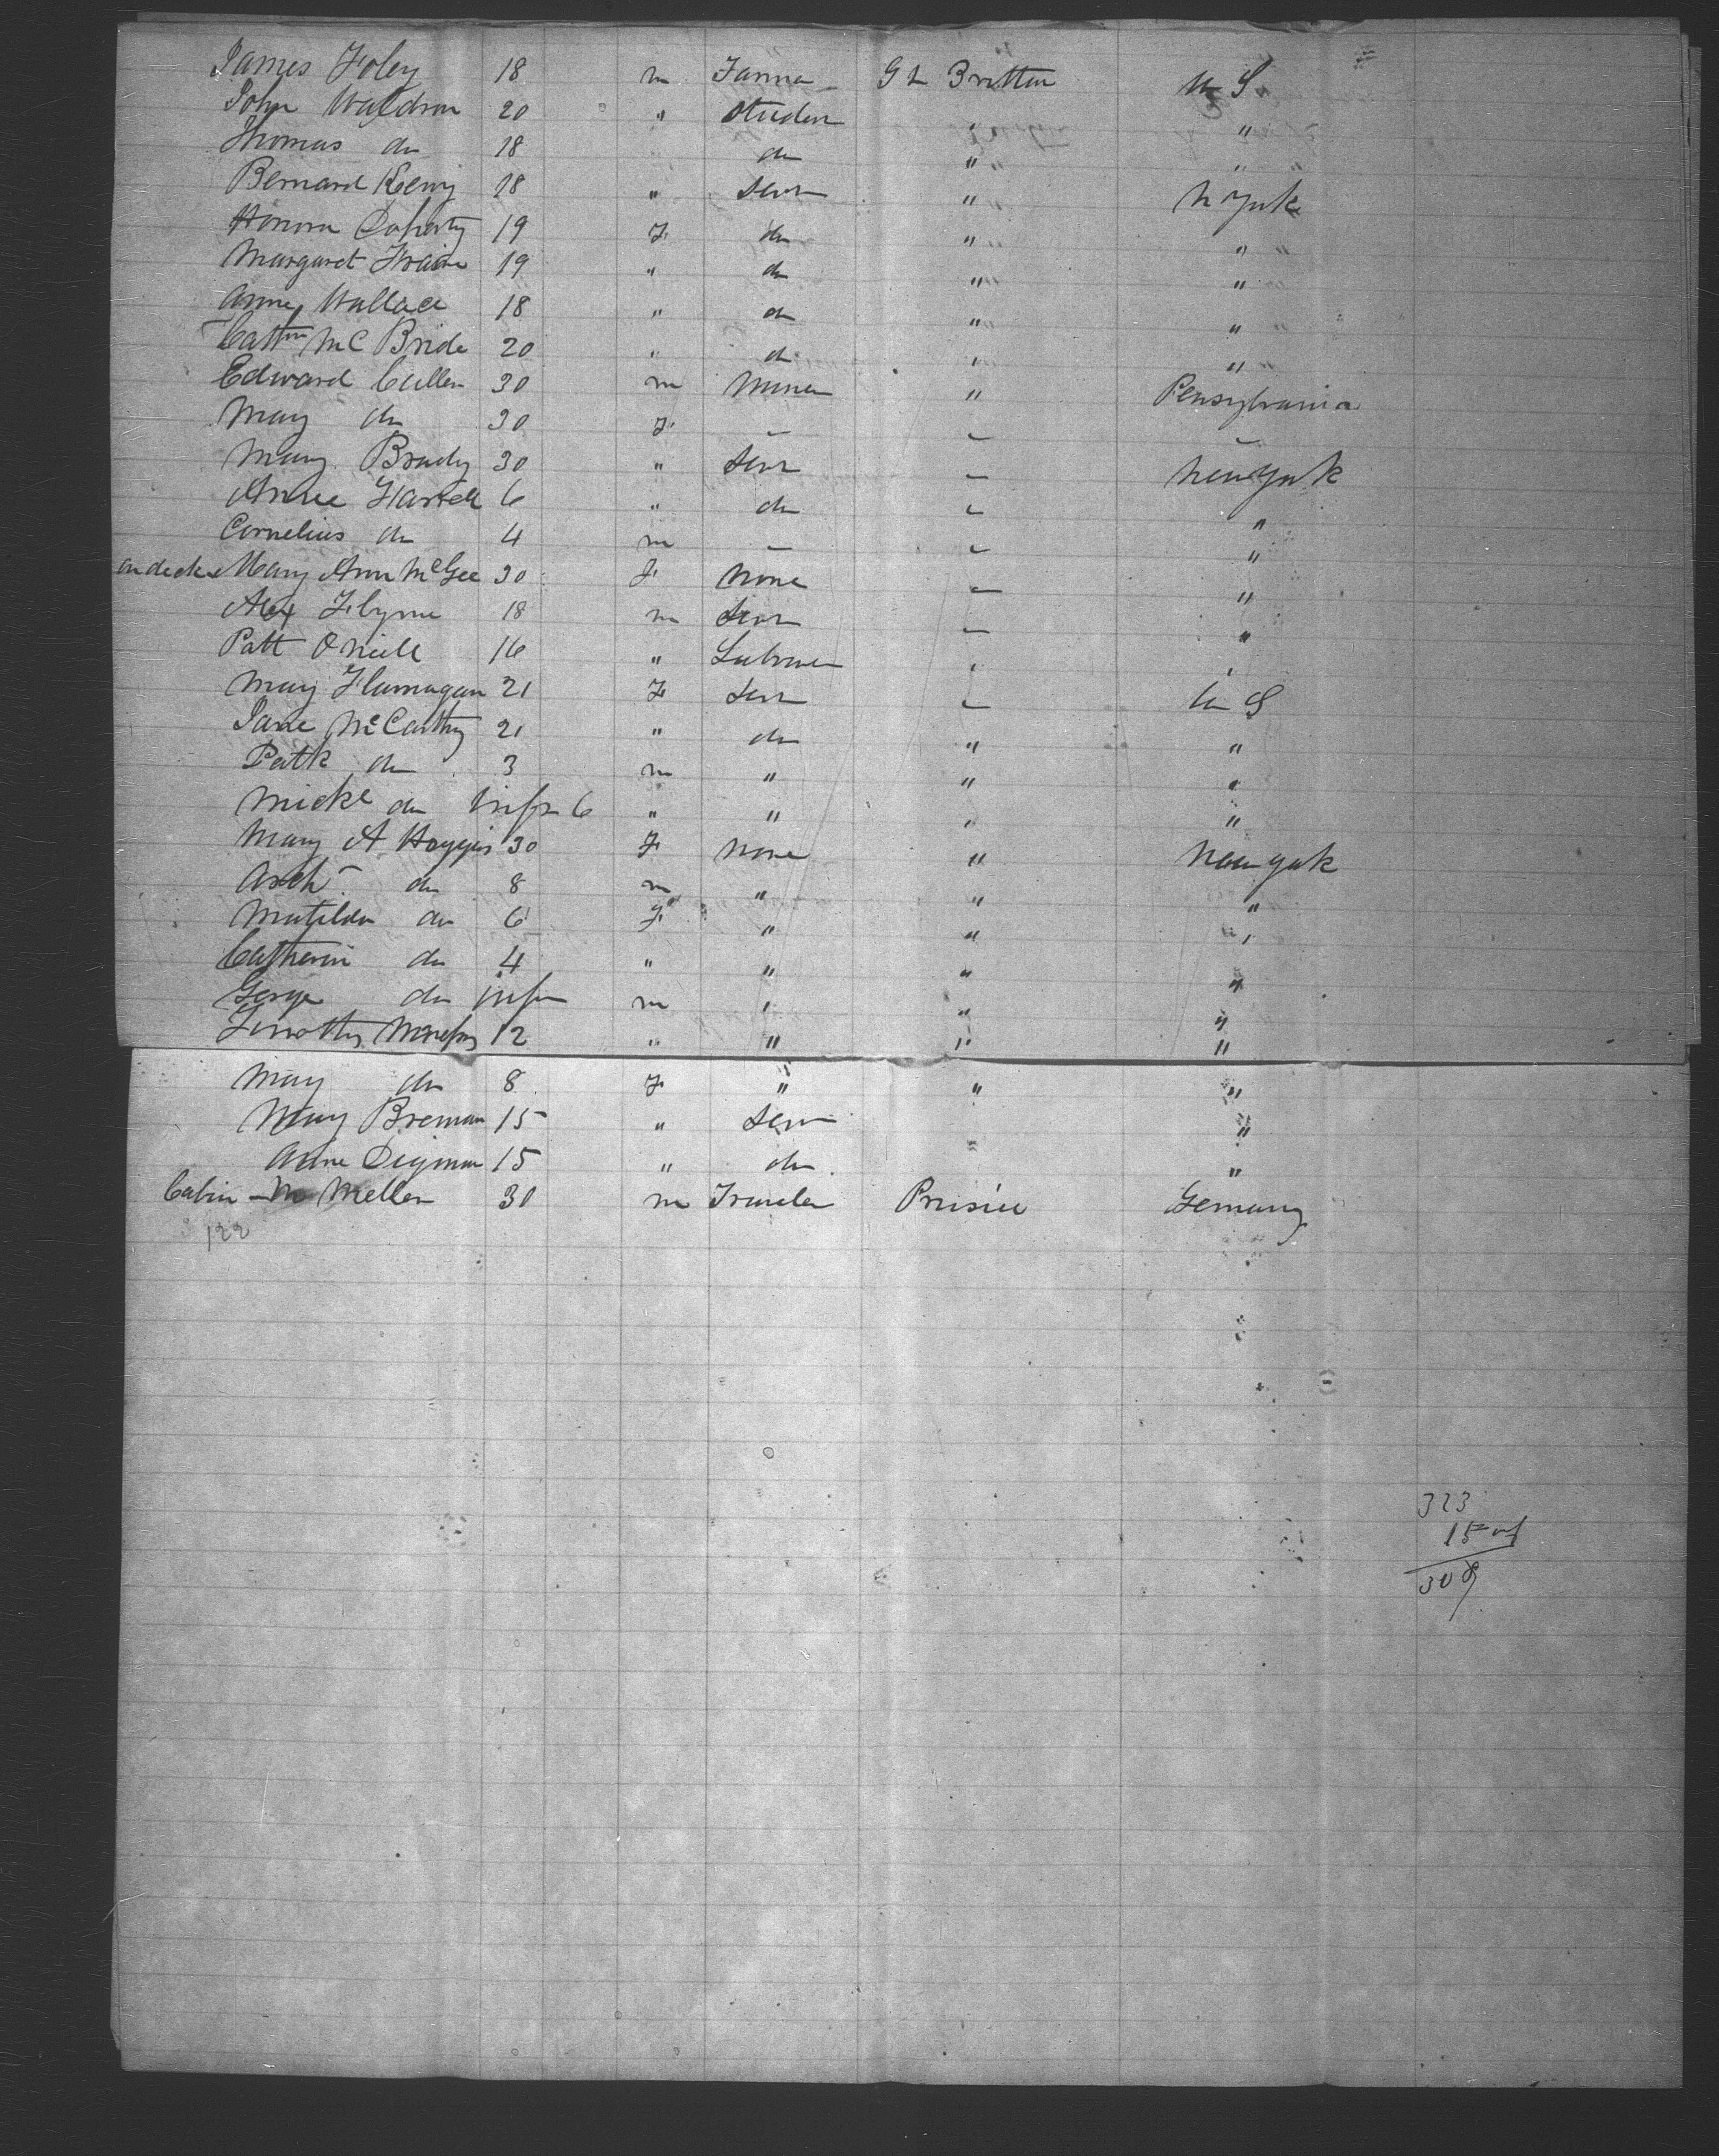 James Foley 18 m Farmer Gt Britten U S
John Waldron 20 " Studen " "
Thomas do 18 " do " " "
Bernard Kenny 18 " Servt " N York
Honora Doherty 19 F do " " "
Margaret 19 " do " "
Anne Wallace 18 " do " "
Cathne Mc Bride 20 " do " " "
Edward Cullen 30 m Miner " Pensylvania
Mary do 30 F " " "
Mary Brady 30 " Servt " New York
Annie Farrell 6 " do " "
Cornelius do 4 m " " "
on deck Mary Ann McGee 30 F None " "
Alex Flynn 18 m Servt " "
Patt O Neill 16 " Labourer " "
Mary Flannagan 21 F Servt " U S
Jane McCarthy 21 " do " "
Patk do 3 m " " "
Mickl do Infn 6 " " " "
Mary A Hoggins 30 F None " New York
Arch do 8 m " " "
Matilda do 6 F " " "
Catherin do 4 " " " "
Gorge do infn m " " "
Timothy 12 " " " "
Mary do 8 F " " "
Mary Brennan 15 " Servt "
Anne Dignan 15 " do "
Cabin M Meller 30 m Traveler Prusia Germany
122
323
15
308